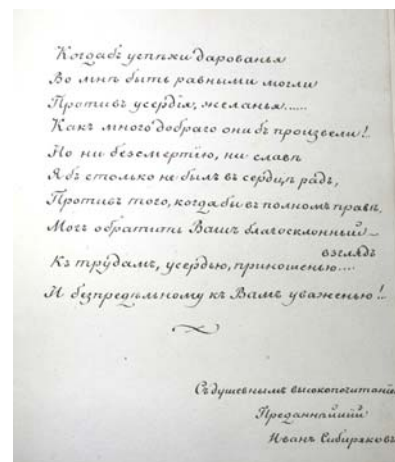 Когдабъ успѣхи дарованья
Во мнѣ быть равными могли
Противъ усердія, желанья......
Какъ много добраго онибъ произвели!..
Но ни безсмертію, ни славѣ
Я бъ столько не былъ въ сердцѣ радъ,
Противъ того, когда бы въ полномъ правѣ,
Могъ обратить Вашъ благосклонный
взглядъ
Къ трудамъ, усердью, приношенью....
И безпредѣльному къ Вамъ уваженью!..
Съ душевнымъ высокопочитаніе
Преданнѣйшій
Иванъ Сибиряковъ